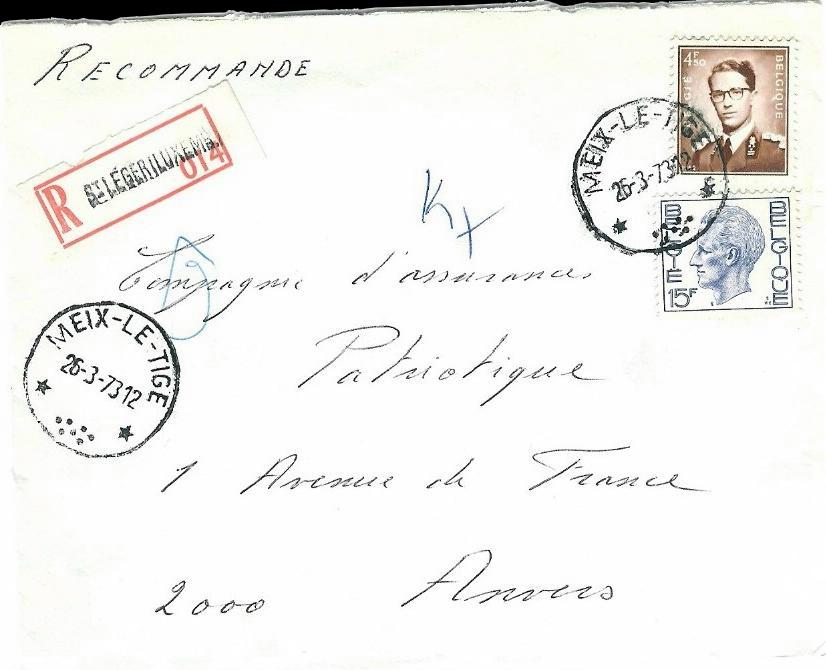 RECOMMANDE
4F50
BELGIË
BELGIQUE
R
St LÉGER (LUXEMB.)
014
MEIX-LE-TIGE
26-3-73 12
Kx
BELGIË
BELGIQUE
15F
Compagnie d'assurances
Patriotique
MEIX-LE-TIGE
26-3-73 12
1 Avenue de France
2000 Anvers